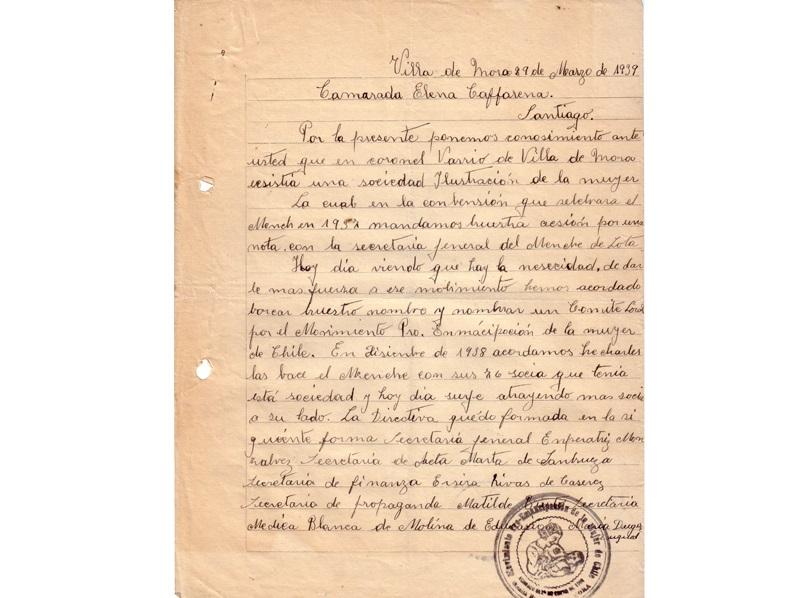 Villa de Mora 29 de Marzo de 1939
Camarada Elena Caffarena.
Santiago.
Por la presente ponemos conosimiento ante
usted que en coronel Varrio de Villa de Mora
ecsistia una sociedad Ilustración de la muyer
La cual en la conbensión que selebrara el
Mench en 193 mandamos nuestra acsión por una
nota, con la secretaria feneral del Menche de Lota
Hoy dia viendo que hay la nesecidad, de dar
le mas fuerza a ese motimiento hemos acordado
borear nuestro nombro y nombrar un Comite Local
por el Movimiento Pro. Enmácipoción de la muyer
de Chile. En Disienbre de 1938 acordamos hecharles
las bace el Menche con sus 26 socia que tenia
está sociedad y hoy dia surje atrayendo mas socia
a su lado. La Directiva quedo formada en la si
guiente forma Secretaria feneral Enperatriz Mon
salvez Secretaria de Acta Marta de Sanhueza
Secretaria de finanza Ersira Rivas de Caserez
Secretaria de propaganda Matilde Secretaria
Medica Blanca de Molina de Educacion Maria
Movimiento Pro-Emancipación de la Mujer de Chile